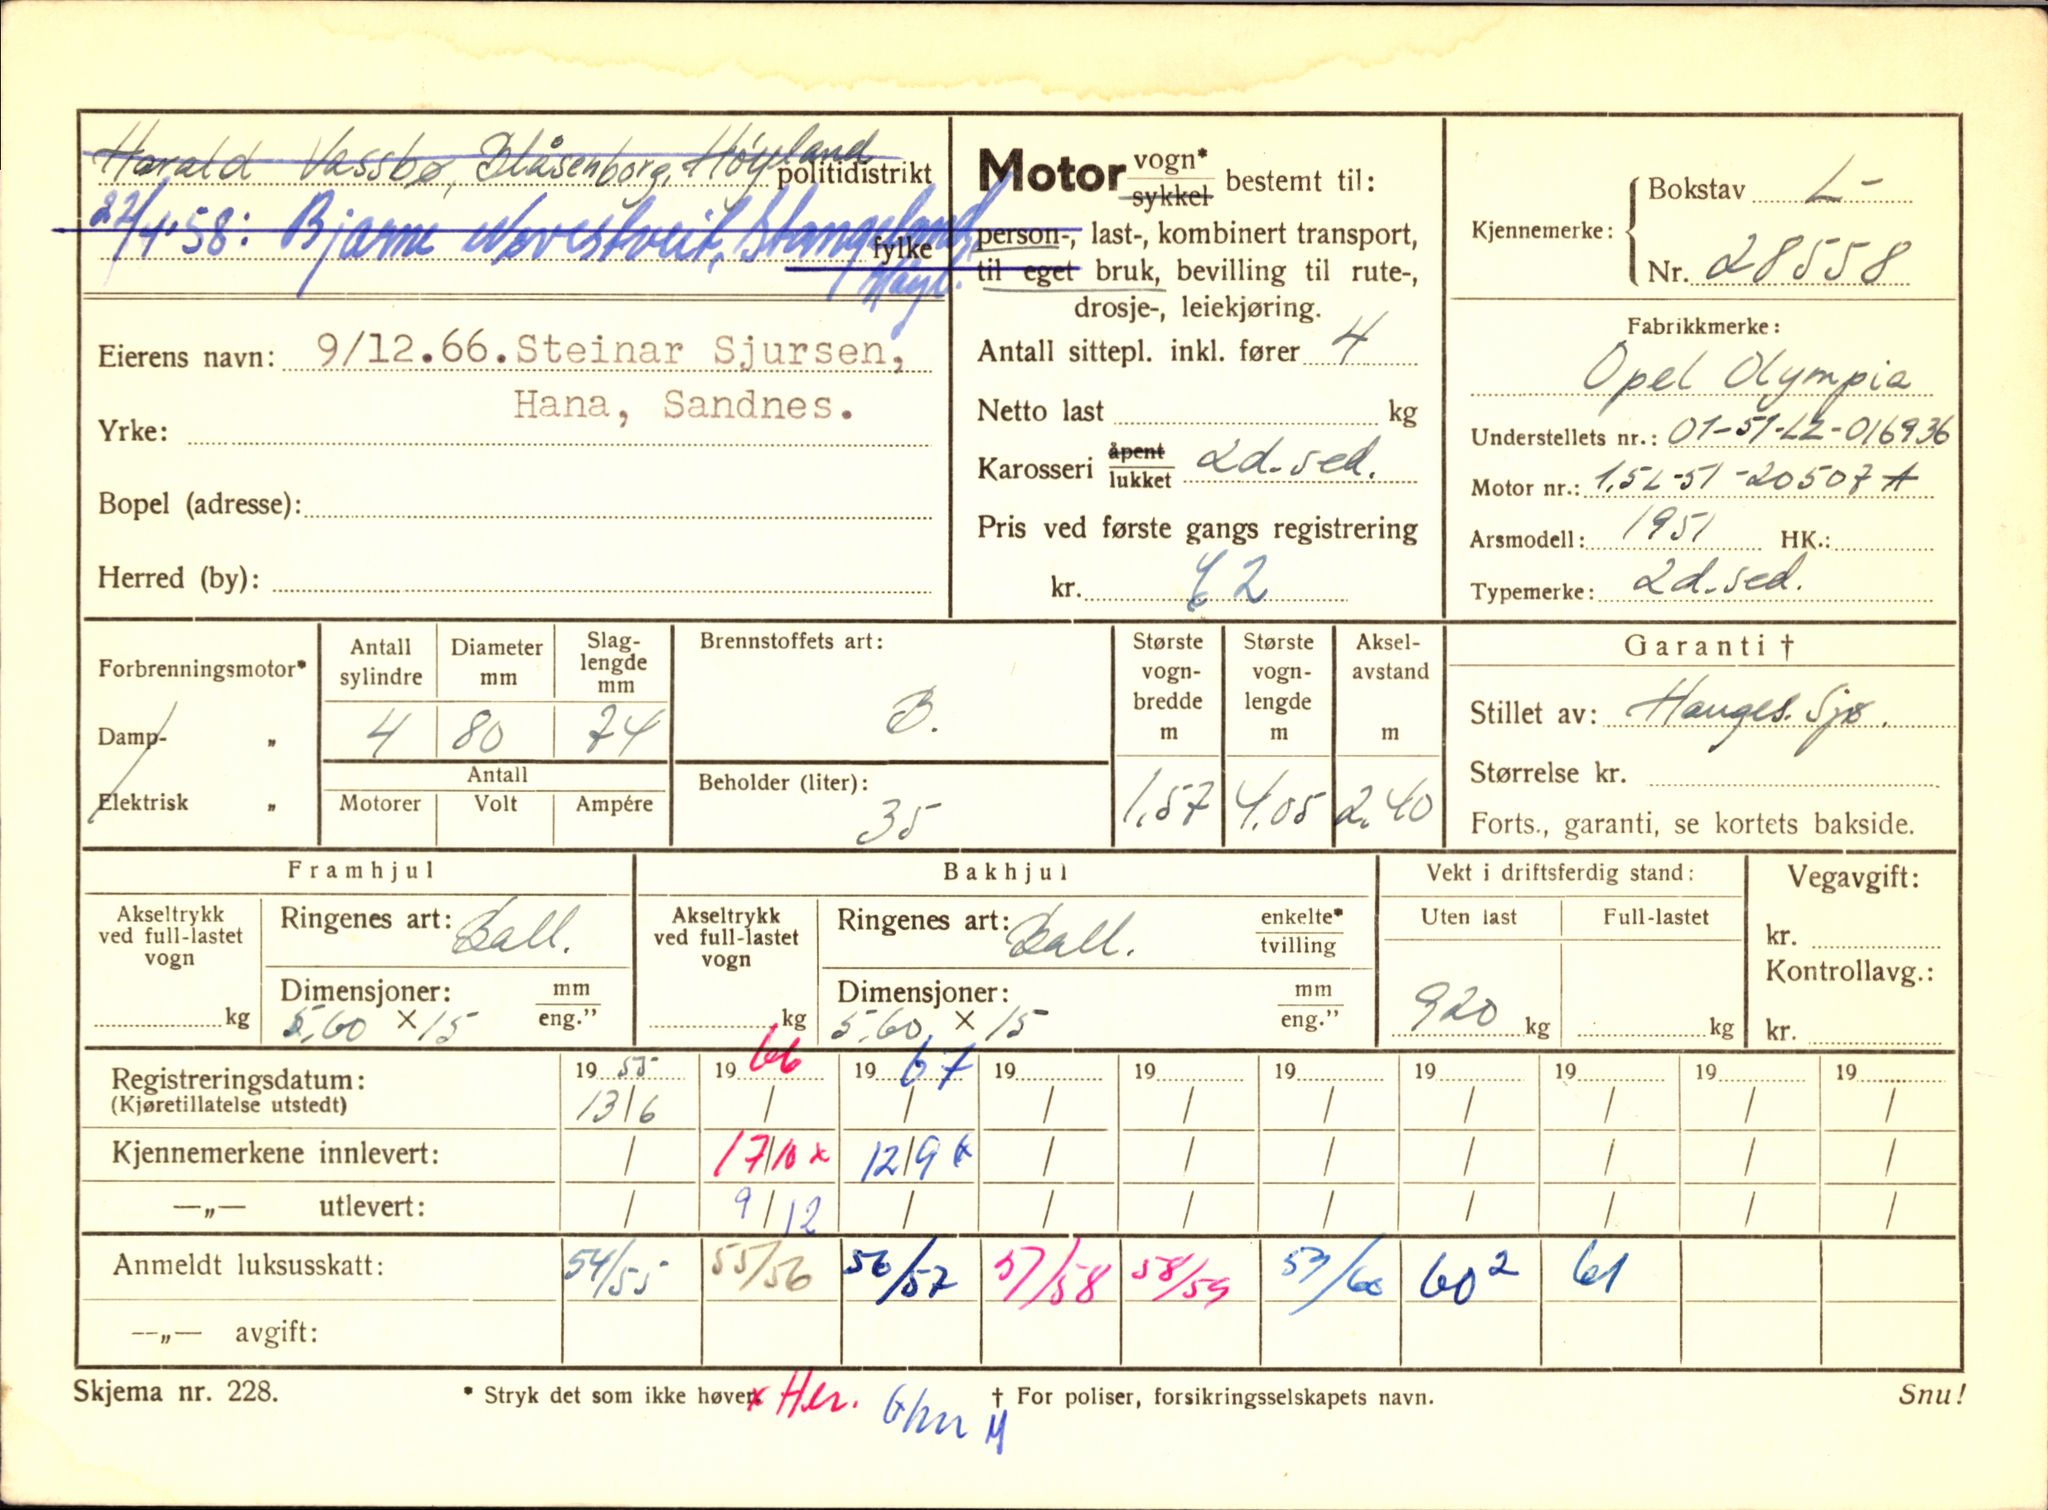 Harald Vassbø, Blåsenborg, Høyland politidistrikt
22/4·58: Bjarne Norestveit, Stangeland,
Høyl. fylke
Eierens navn: 9/12.66. Steinar Sjursen,
Hana, Sandnes.
Yrke:
Bopel (adresse):
Herred (by):
Motor vogn* sykkel bestemt til:
person-, last-, kombinert transport,
til eget bruk, bevilling til rute-,
drosje-, leiekjøring.
Antall sittepl. inkl. fører 4
Netto last kg
Karosseri åpent lukket 2d. sed.
Pris ved første gangs registrering
kr. 62
Kjennemerke: Bokstav L-
Nr. 28558
Fabrikkmerke:
Opel Olympia
Understellets nr.: 01-51-LZ-016936
Motor nr.: 1,5L-51-20507 A
Arsmodell: 1951 HK.:
Typemerke: 2d. sed.
Forbrenningsmotor*
Damp- „
Elektrisk „
Antall sylindre 4
Diameter mm 80
Slag-lengde mm 74
Antall
Motorer Volt Ampére
Brennstoffets art:
B.
Beholder (liter):
35
Største vogn-bredde m 1,57
Største vogn-lengde m 4,05
Aksel-avstand m 2,40
Garanti †
Stillet av: Hauges. Sjø.
Størrelse kr.
Forts., garanti, se kortets bakside.
Framhjul
Akseltrykk ved full-lastet vogn kg
Ringenes art: Ball.
Dimensjoner: mm eng.”
5,60 × 15
Bakhjul
Akseltrykk ved full-lastet vogn kg
Ringenes art: Ball. enkelte* tvilling
Dimensjoner: mm eng.”
5,60 × 15
Vekt i driftsferdig stand:
Uten last Full-lastet
920 kg kg
Vegavgift:
kr.
Kontrollavg.:
kr.
Registreringsdatum: 19 55 19 66 19 67 19 19 19 19 19 19 19
(Kjøretillatelse utstedt) 13/6 / / / / / / / / /
Kjennemerkene innlevert: / 17/10 x 12/9 x / / / / / / /
—„— utlevert: / 9/12 / / / / / / / /
Anmeldt luksusskatt: 54/55 55/56 56/57 57/58 58/59 59/60 60² 61
—„— avgift:
Skjema nr. 228. * Stryk det som ikke høver. x Her. † For poliser, forsikringsselskapets navn. Snu!